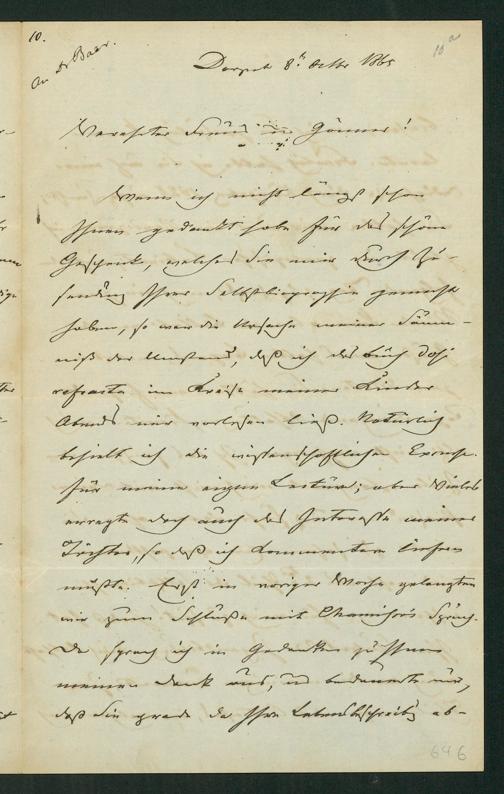 10.
10a
An Dr Baer.
Dorpat 8t Octbr 1865
Verehrter Freund und Gönner!
Wenn ich nicht längst schon
Ihnen gedankt habe für das schöne
Geschenk, welches Sie mir durch Zu-
sendung Ihrer Selbstbiographie gemacht
haben, so war die Ursache meiner Säum-
niß der Umstand, daß ich das Buch dosi
refracta im Kreise meiner Kinder
Abends mir vorlesen ließ. Natürlich
behielt ich die wissenschaftlichen Excurse
für meine eigene Lectüre; aber Vieles
erregte doch auch das Interesse meiner
Töchter, so daß ich Kommentare liefern
mußte. Erst in voriger Woche gelangten
wir zum Schluße mit Chamisso's Spruch.
Da sprach ich in Gedanken zu Ihnen
meinen Dank aus, u bedauerte nur,
daß Sie grade da Ihre Lebensbeschreibg ab-
646